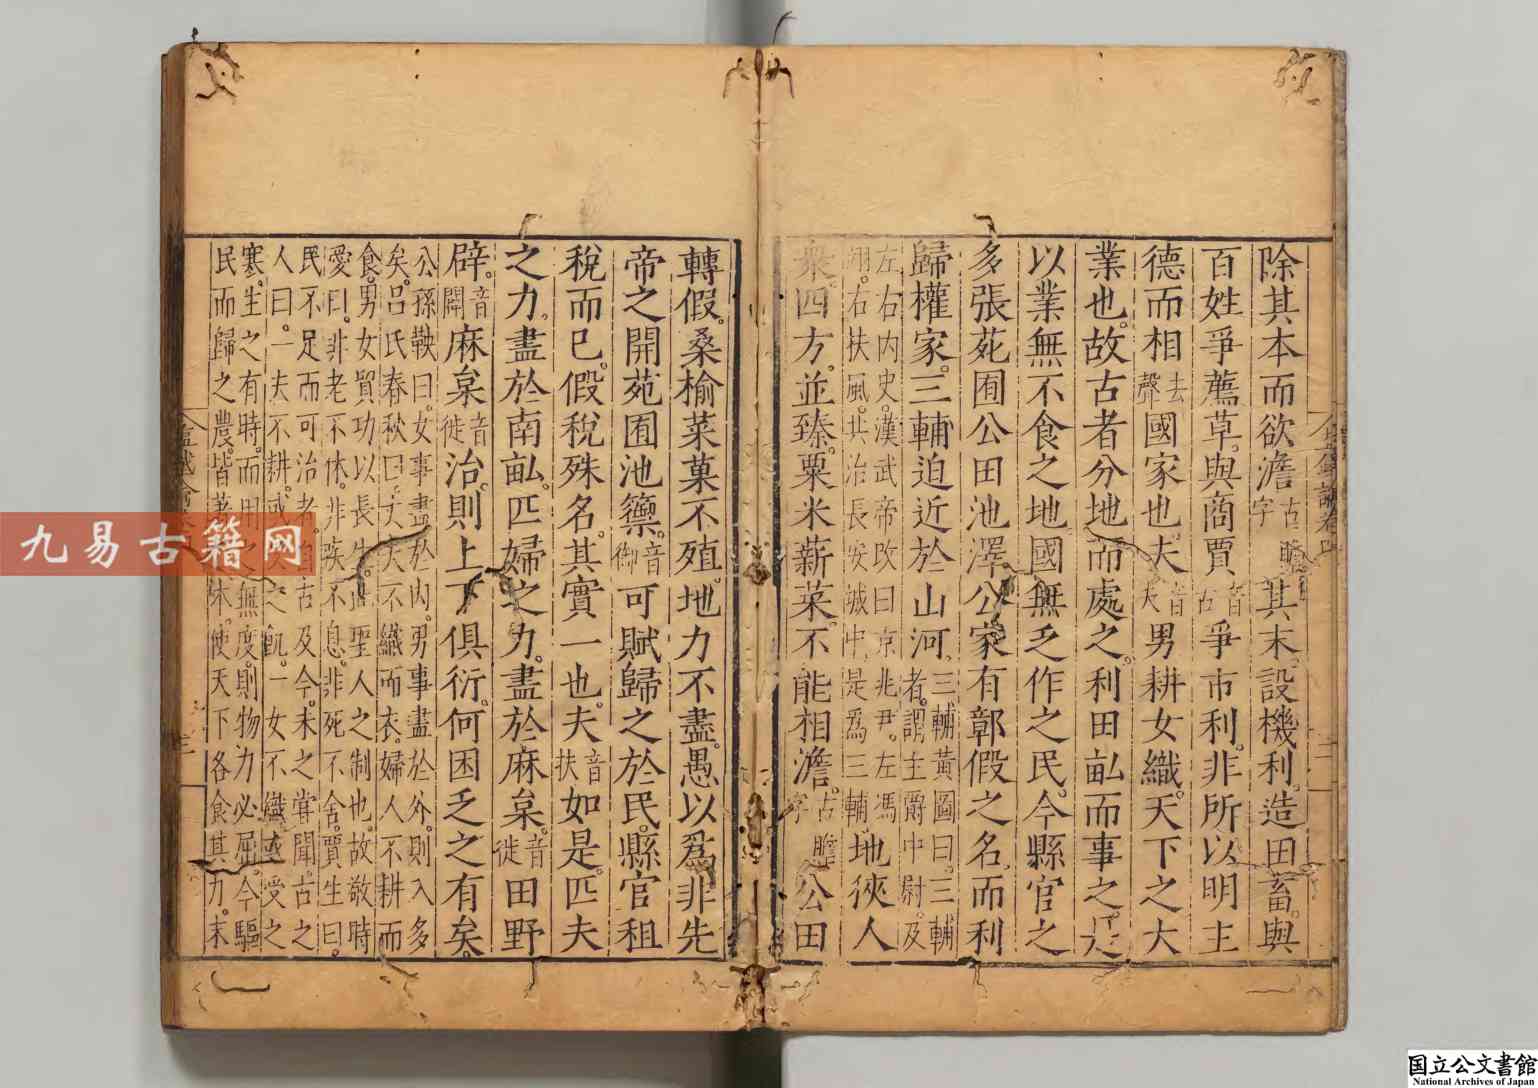 除其本而欲澹古贍字其末設機利造田畜與
百姓爭薦草與商賈音古爭市利非所以明主
德而相去聲國家也夫音夫男耕女織天下之大
業也故古者分地而處之利田畝而事之是
以業無不食之地國無乏作之民今縣官之
多張苑囿公田池澤公家有鄣假之名而利
歸權家三輔迫近於山河三輔黃圖曰三輔者謂主爵中尉及
左右內史漢武帝改曰京兆尹左馮翊右扶風共治長安城中是爲三輔地狹人
衆四方並臻粟米薪菜不能相澹古贍字公田
轉假桑榆菜菓不殖地力不盡愚以爲非先
帝之開苑囿池籞音御可賦歸之於民縣官租
稅而已假稅殊名其實一也夫音扶如是匹夫
之力盡於南畝匹婦之力盡於麻枲音徙田野
辟音闢麻枲音徙治則上下俱衍何困乏之有矣
公孫鞅曰女事盡於內男事盡於外則入多
矣呂氏春秋曰丈夫不織而衣婦人不耕而
食男女貿功以長生此聖人之制也故敬時
愛日非老不休非疾不息非死不舍賈生曰
民不足而可治者自古及今未之嘗聞古之
人曰一夫不耕或受之飢一女不織或受之
寒生之有時而用之無度則物力必屈今驅
民而歸之農皆著於本使天下各食其力末
九易古籍网
国立公文書館
National Archives of Japan